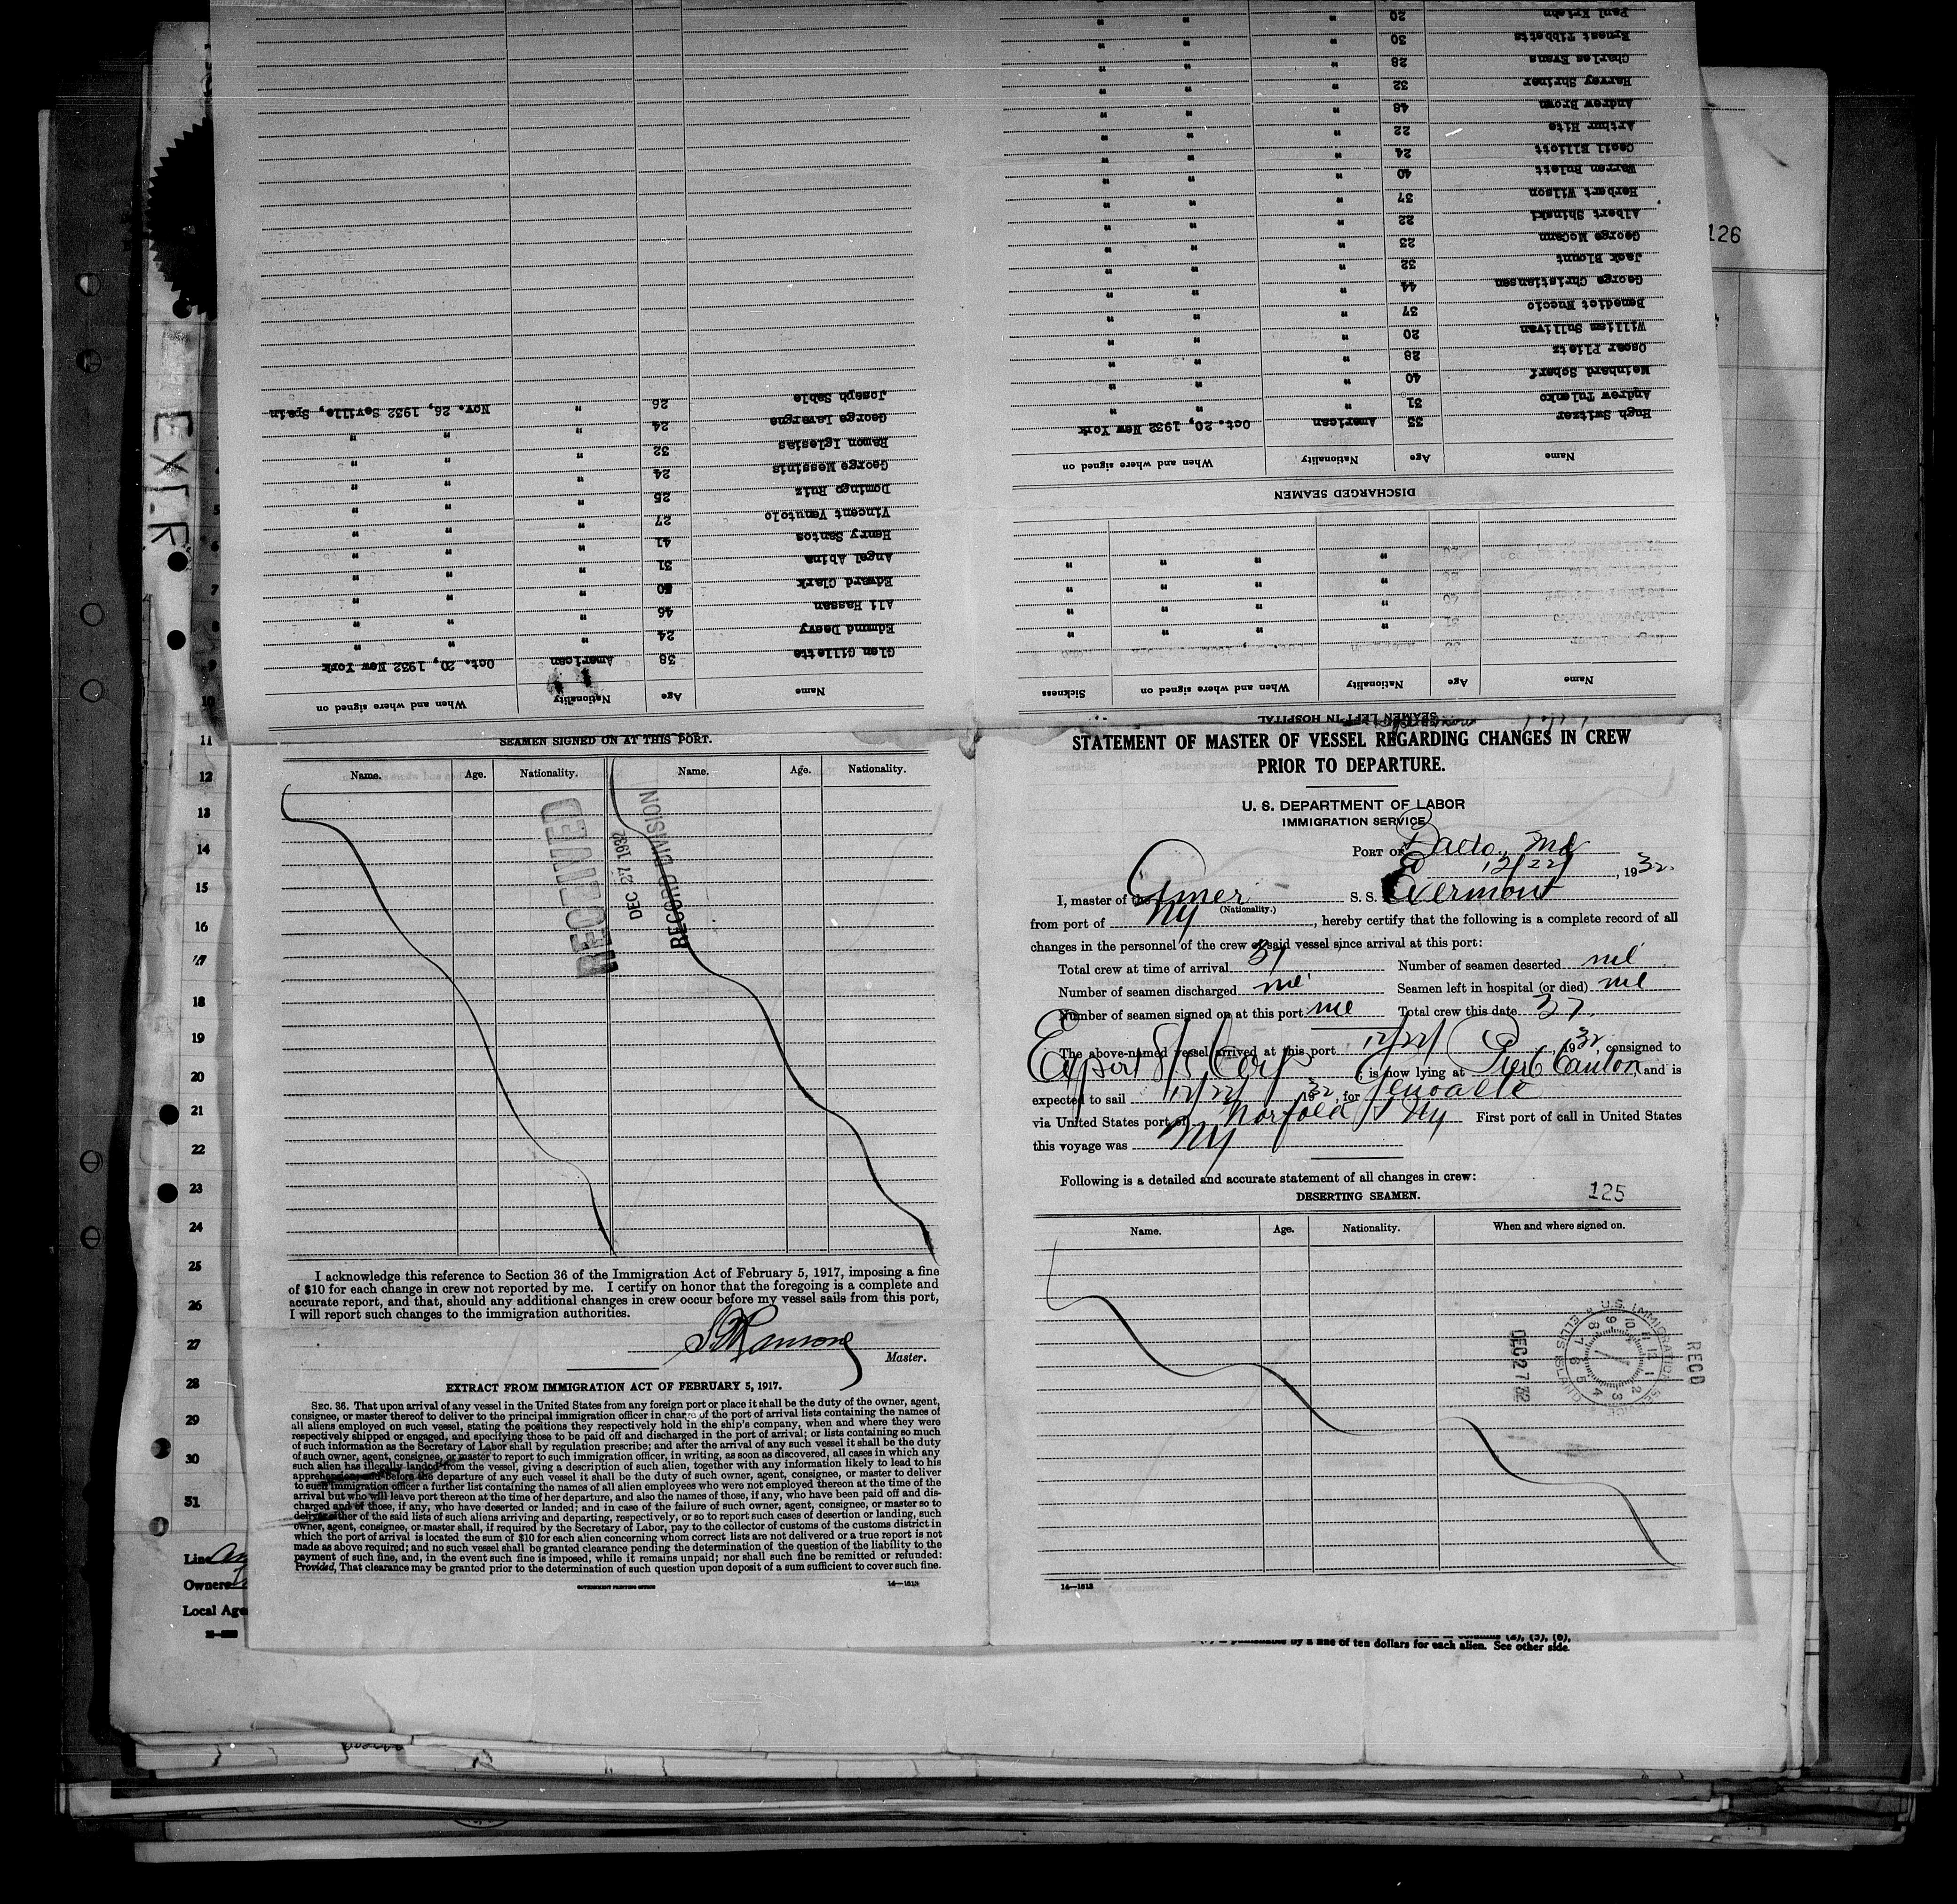 SEAMEN LEFT IN HOSPITAL
Name Age Nationality When and where signed on Sickness
" " " "
" " " "
" " " "
" " " "
DISCHARGED SEAMEN
Name Age Nationality When and where signed on
Hugh Switzer 35 American Oct. 20, 1932 New York
Andrew Tulenko 31 " " "
Meinhard Scherf 40 " " "
Oscar Plietz 28 " " "
William Sullivan 20 " " "
Benedict Nuccio 37 " " "
George Christiansen 44 " " "
Jack Blount 32 " " "
George McCann 23 " " "
Albert Shinski 22 " " "
Herbert Wilson 37 " " "
Warren Bulett 40 " " "
Cecil Elliott 24 " " "
Arthur Hite 22 " " "
Andrew Brown 48 " " "
Harvey Shriner 32 " " "
Charles Evans 28 " " "
Ernest Tibbetts 30 " " "
Paul Kriehn 20 " " "
Name Age Nationality When and where signed on
Glen Gillette 38 American Oct. 20, 1932 New York
Edmund Deevy 24 " " "
Ali Hassan 46 " " "
Edward Clark 20 " " "
Angel Abina 31 " " "
Henry Santos 41 " " "
Vincent Venutolo 27 " " "
Domingo Ruiz 25 " " "
George Messinis 24 " " "
Ramon Iglesias 32 " " "
George Lavergne 24 " " "
Joseph Sable 26 " Nov. 26, 1932 Seville, Spain
126
EXLR
5
6
7
8
9
10
11
12
13
14
15
16
17
18
19
20
21
22
23
24
25
26
27
28
29
30
31
Line
Owners
Local Age
SEAMEN SIGNED ON AT THIS PORT.
Name. Age. Nationality. Name. Age. Nationality.
RECEIVED
DEC 27 1932
RECORD DIVISION
I acknowledge this reference to Section 36 of the Immigration Act of February 5, 1917, imposing a fine
of $10 for each change in crew not reported by me. I certify on honor that the foregoing is a complete and
accurate report, and that, should any additional changes in crew occur before my vessel sails from this port,
I will report such changes to the immigration authorities.
Master.
EXTRACT FROM IMMIGRATION ACT OF FEBRUARY 5, 1917.
SEC. 36. That upon arrival of any vessel in the United States from any foreign port or place it shall be the duty of the owner, agent,
consignee, or master thereof to deliver to the principal immigration officer in charge of the port of arrival lists containing the names of
all aliens employed on such vessel, stating the positions they respectively hold in the ship's company, when and where they were
respectively shipped or engaged, and specifying those to be paid off and discharged in the port of arrival; or lists containing so much
of such information as the Secretary of Labor shall by regulation prescribe; and after the arrival of any such vessel it shall be the duty
of such owner, agent, consignee, or master to report to such immigration officer, in writing, as soon as discovered, all cases in which any
such alien has illegally landed from the vessel, giving a description of such alien, together with any information likely to lead to his
apprehension; and before the departure of any such vessel it shall be the duty of such owner, agent, consignee, or master to deliver
to such immigration officer a further list containing the names of all alien employees who were not employed thereon at the time of the
arrival but who will leave port thereon at the time of her departure, and also the names of those, if any, who have been paid off and dis-
charged and of those, if any, who have deserted or landed; and in case of the failure of such owner, agent, consignee, or master so to
deliver either of the said lists of such aliens arriving and departing, respectively, or so to report such cases of desertion or landing, such
owner, agent, consignee, or master shall, if required by the Secretary of Labor, pay to the collector of customs of the customs district in
which the port of arrival is located the sum of $10 for each alien concerning whom correct lists are not delivered or a true report is not
made as above required; and no such vessel shall be granted clearance pending the determination of the question of the liability to the
payment of such fine, and, in the event such fine is imposed, while it remains unpaid; nor shall such fine be remitted or refunded:
Provided, That clearance may be granted prior to the determination of such question upon deposit of a sum sufficient to cover such fine.
GOVERNMENT PRINTING OFFICE 14—1613
STATEMENT OF MASTER OF VESSEL REGARDING CHANGES IN CREW
PRIOR TO DEPARTURE.
U. S. DEPARTMENT OF LABOR
IMMIGRATION SERVICE
PORT OF Balto., Md
12/22/, 1932
I, master of the Amer S. S. Exermont
(Nationality.)
from port of NY, hereby certify that the following is a complete record of all
changes in the personnel of the crew of said vessel since arrival at this port:
Total crew at time of arrival 37 Number of seamen deserted nil
Number of seamen discharged nil Seamen left in hospital (or died) nil
Number of seamen signed on at this port nil Total crew this date 37.
The above-named vessel arrived at this port 12/22/, 1932, consigned to
Export S/S Corp, is now lying at Pier 6 Canton, and is
expected to sail 12/22/ 1932, for Genoa etc
via United States port of Norfolk & NY First port of call in United States
this voyage was NY
Following is a detailed and accurate statement of all changes in crew:
DESERTING SEAMEN. 125
Name. Age. Nationality. When and where signed on.
U.S. IMMIGRATION SERVICE ELLIS ISLAND
DEC 27 32
RECD
14—1613
is punishable by a fine of ten dollars for each alien. See other side.